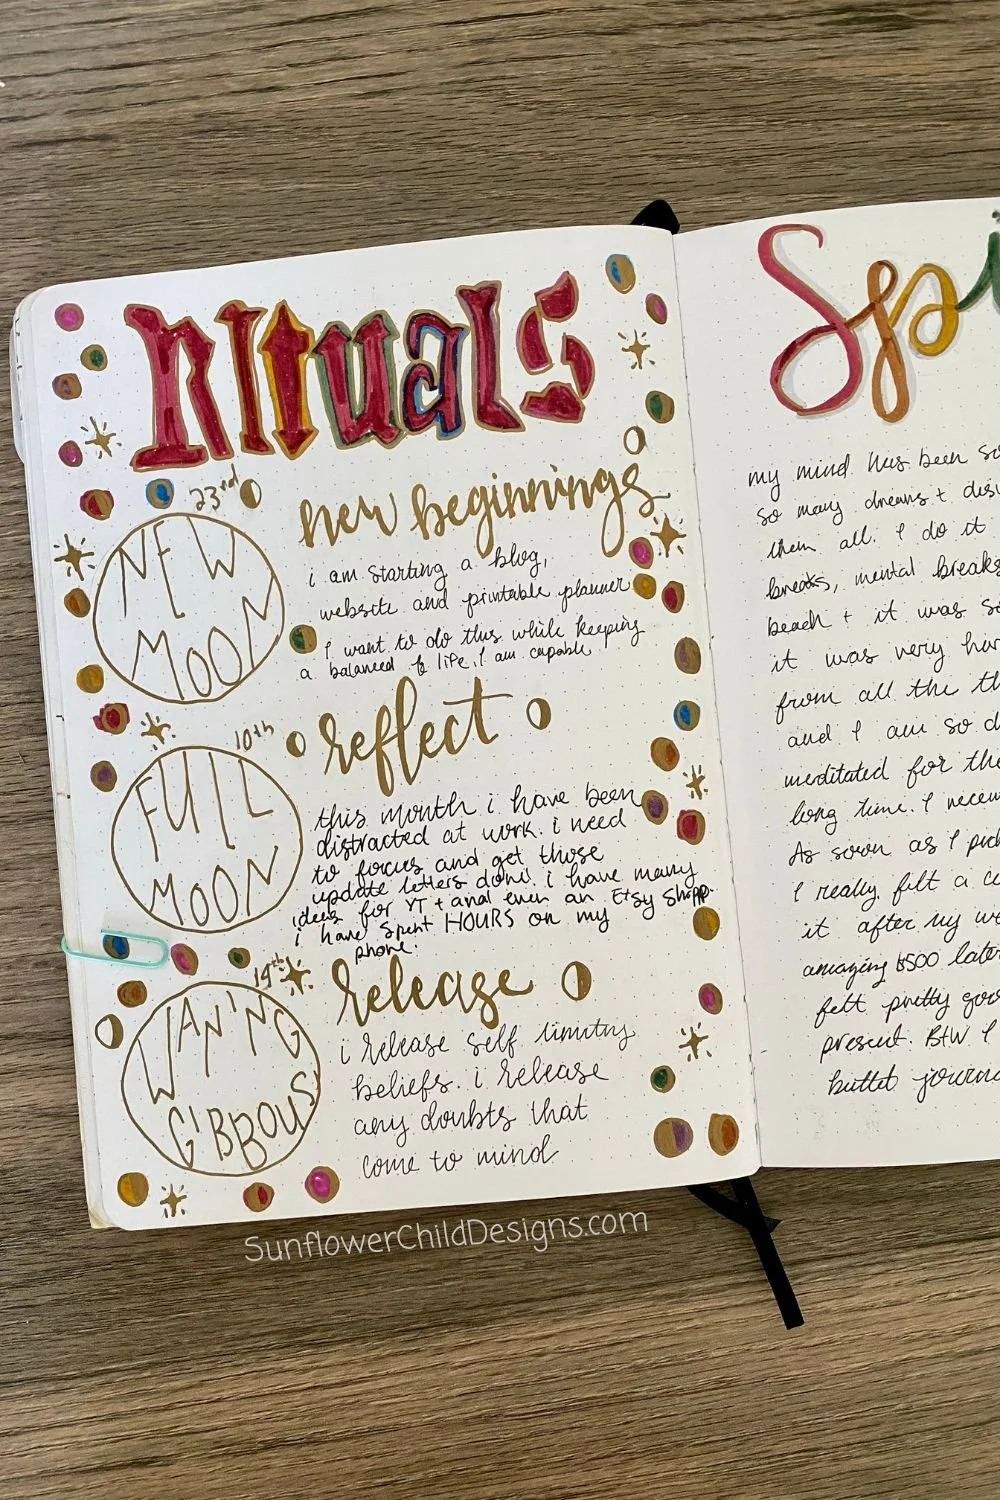 Rituals
23rd
NEW
MOON
new beginnings
i am starting a blog,
website and printable planner
I want to do this while keeping
a balanced life. I am capable.
10th
FULL
MOON
reflect
this month i have been
distracted at work. i need
to focus and get those
update letters done. i have many
ideas for YT + and even an Etsy shop.
i have spent HOURS on my
phone.
19th
WANING
GIBBOUS
release
i release self limiting
beliefs. i release
any doubts that
come to mind
Spi
my mind has been so
so many dreams + desi
them all. I do it
breaks, mental breaks
beach + it was so
it was very har
from all the th
and I am so d
meditated for the
long time. I recen
As soon as I pic
I really felt a
it. after my
amazing $500 later
felt pretty goo
present. BTW I
bullet journa
SunflowerChildDesigns.com